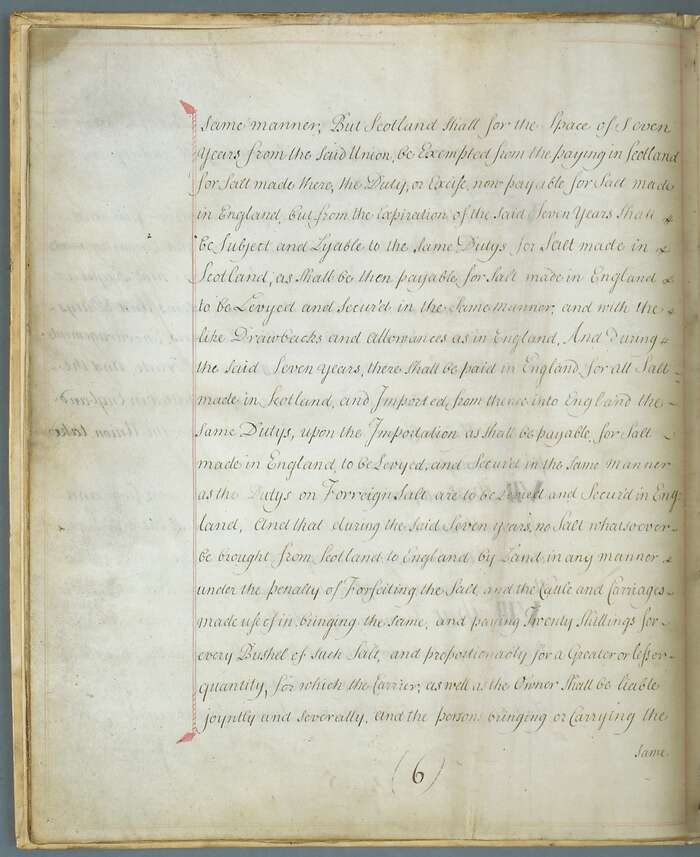 same manner, But Scotland shall for the Space of Seven
Years from the said Union, be Exempted from the paying in Scotland
for Salt made there, the Duty, or Excise, now payable for Salt made
in England, but from the Expiration of the said Seven Years shall
be Subject and Lyable to the same Dutys for Salt made in
Scotland, as shall be then payable for Salt made in England
to be Levyed and Secur'd in the same manner, and with the
like Drawbacks and allowances as in England, And during
the said Seven years, there shall be paid in England for all Salt
made in Scotland, and Imported from thence into England the
same Dutys, upon the Importation as shall be payable for Salt
made in England, to be Levyed and Secur'd in the same manner
as the Dutys on Forreign Salt are to be Levied and Secur'd in Eng
land, And that during the said Seven years, no Salt whatsoever
be brought from Scotland to England by Land in any manner
under the penalty of Forfeiting the Salt, and the Cattle and Carriages
made use of in bringing the same, and paying Twenty Shillings for
every Bushel of such Salt, and proportionably for a Greater or lesser
quantity, for which the Carrier, as well as the Owner shall be liable
joyntly and severally, and the persons bringing or Carrying the
same
(6)